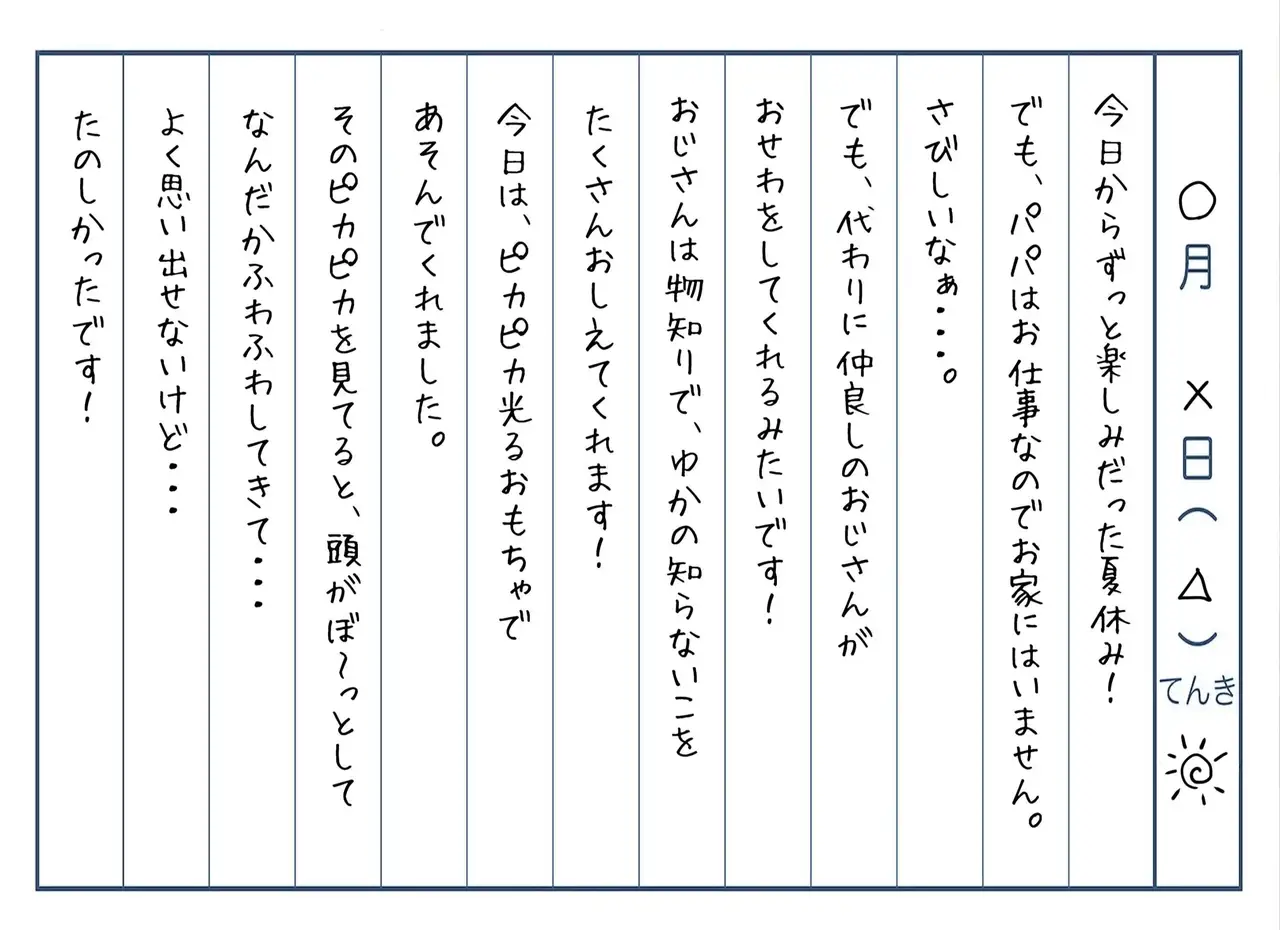 ○月 ×日(△)てんき
今日からずっと楽しみだった夏休み!
でも、パパはお仕事なのでお家にはいません。
さびしいなぁ・・・。
でも、代わりに仲良しのおじさんが
おせわをしてくれるみたいです!
おじさんは物知りで、ゆかの知らないこを
たくさんおしえてくれます!
今日は、ピカピカ光るおもちゃで
あそんでくれました。
そのピカピカを見てると、頭がぼ~っとして
なんだかふわふわしてきて・・・
よく思い出せないけど・・・
たのしかったです!